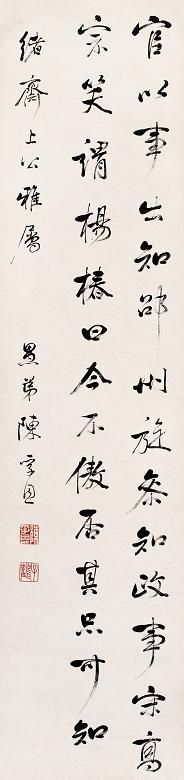 官以事出知邵州旋参知政事宋高
宗笑謂楊椿曰今不傲否其品可知
緒齋上公雅屬
愚弟陳孚恩